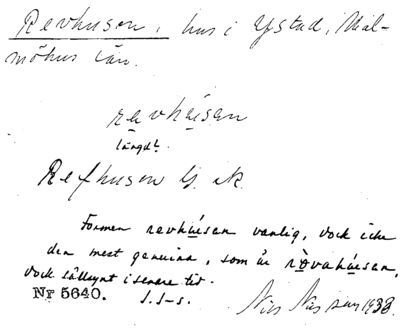 Revhusen, hus i Ystad, Mal-
möhus län.
revhúsan
långd?
Refhusen
Formen revhúsan vanlig, dock icke
den mest genuina, som är rövahúsan,
dock sällsynt i senare tid.
Nr 5640. I. I-s. Nils Nilsson 1938.